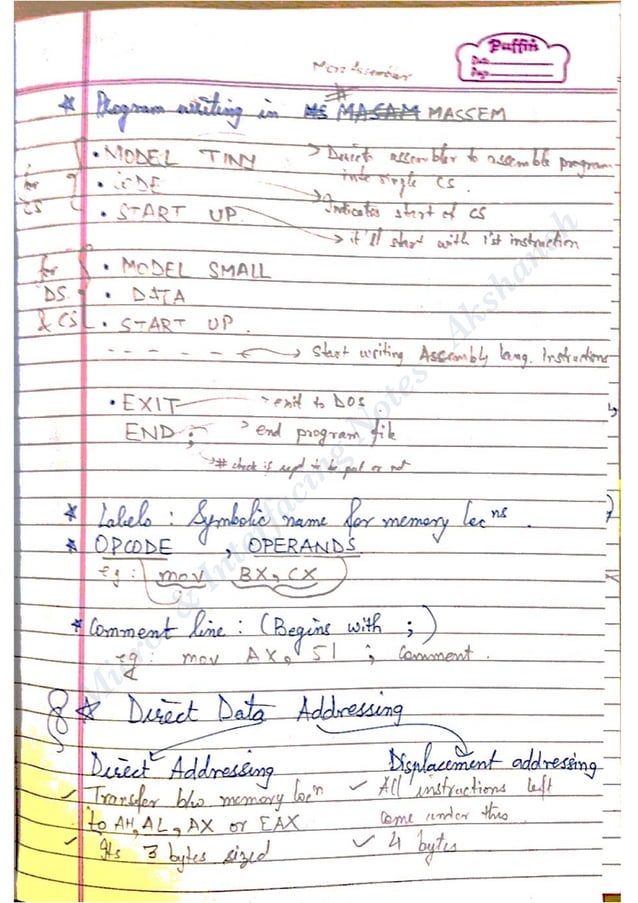 Puffin
Date
Page
★ Program writing in MS MASAM MASSEM
• MODEL TINY → Directs assembler to assemble program
into single CS.
• CODE → Indicates start of CS
for
CS
• START UP → it'll start with 1st instruction
for
DS
& CS
• MODEL SMALL
• DATA
• START UP.
- - - - - → Start writing Assembly lang. Instructions
• EXIT → exit to DOS.
END ; → end program file
# check if reqd to be put or not
★ Labels : Symbolic name for memory locns.
★ OPCODE , OPERANDS
eg : mov BX, CX
★ Comment line : (Begins with ;)
eg: mov AX, 51 ; Comment.
★ Direct Data Addressing
Direct Addressing
✓ Transfer b/w memory loc'n
to AH, AL, AX or EAX
✓ Its 3 bytes sized
Displacement addressing
✓ All instructions left
come under this
✓ 4 bytes
Micro & Interfacing Notes - Akshansh